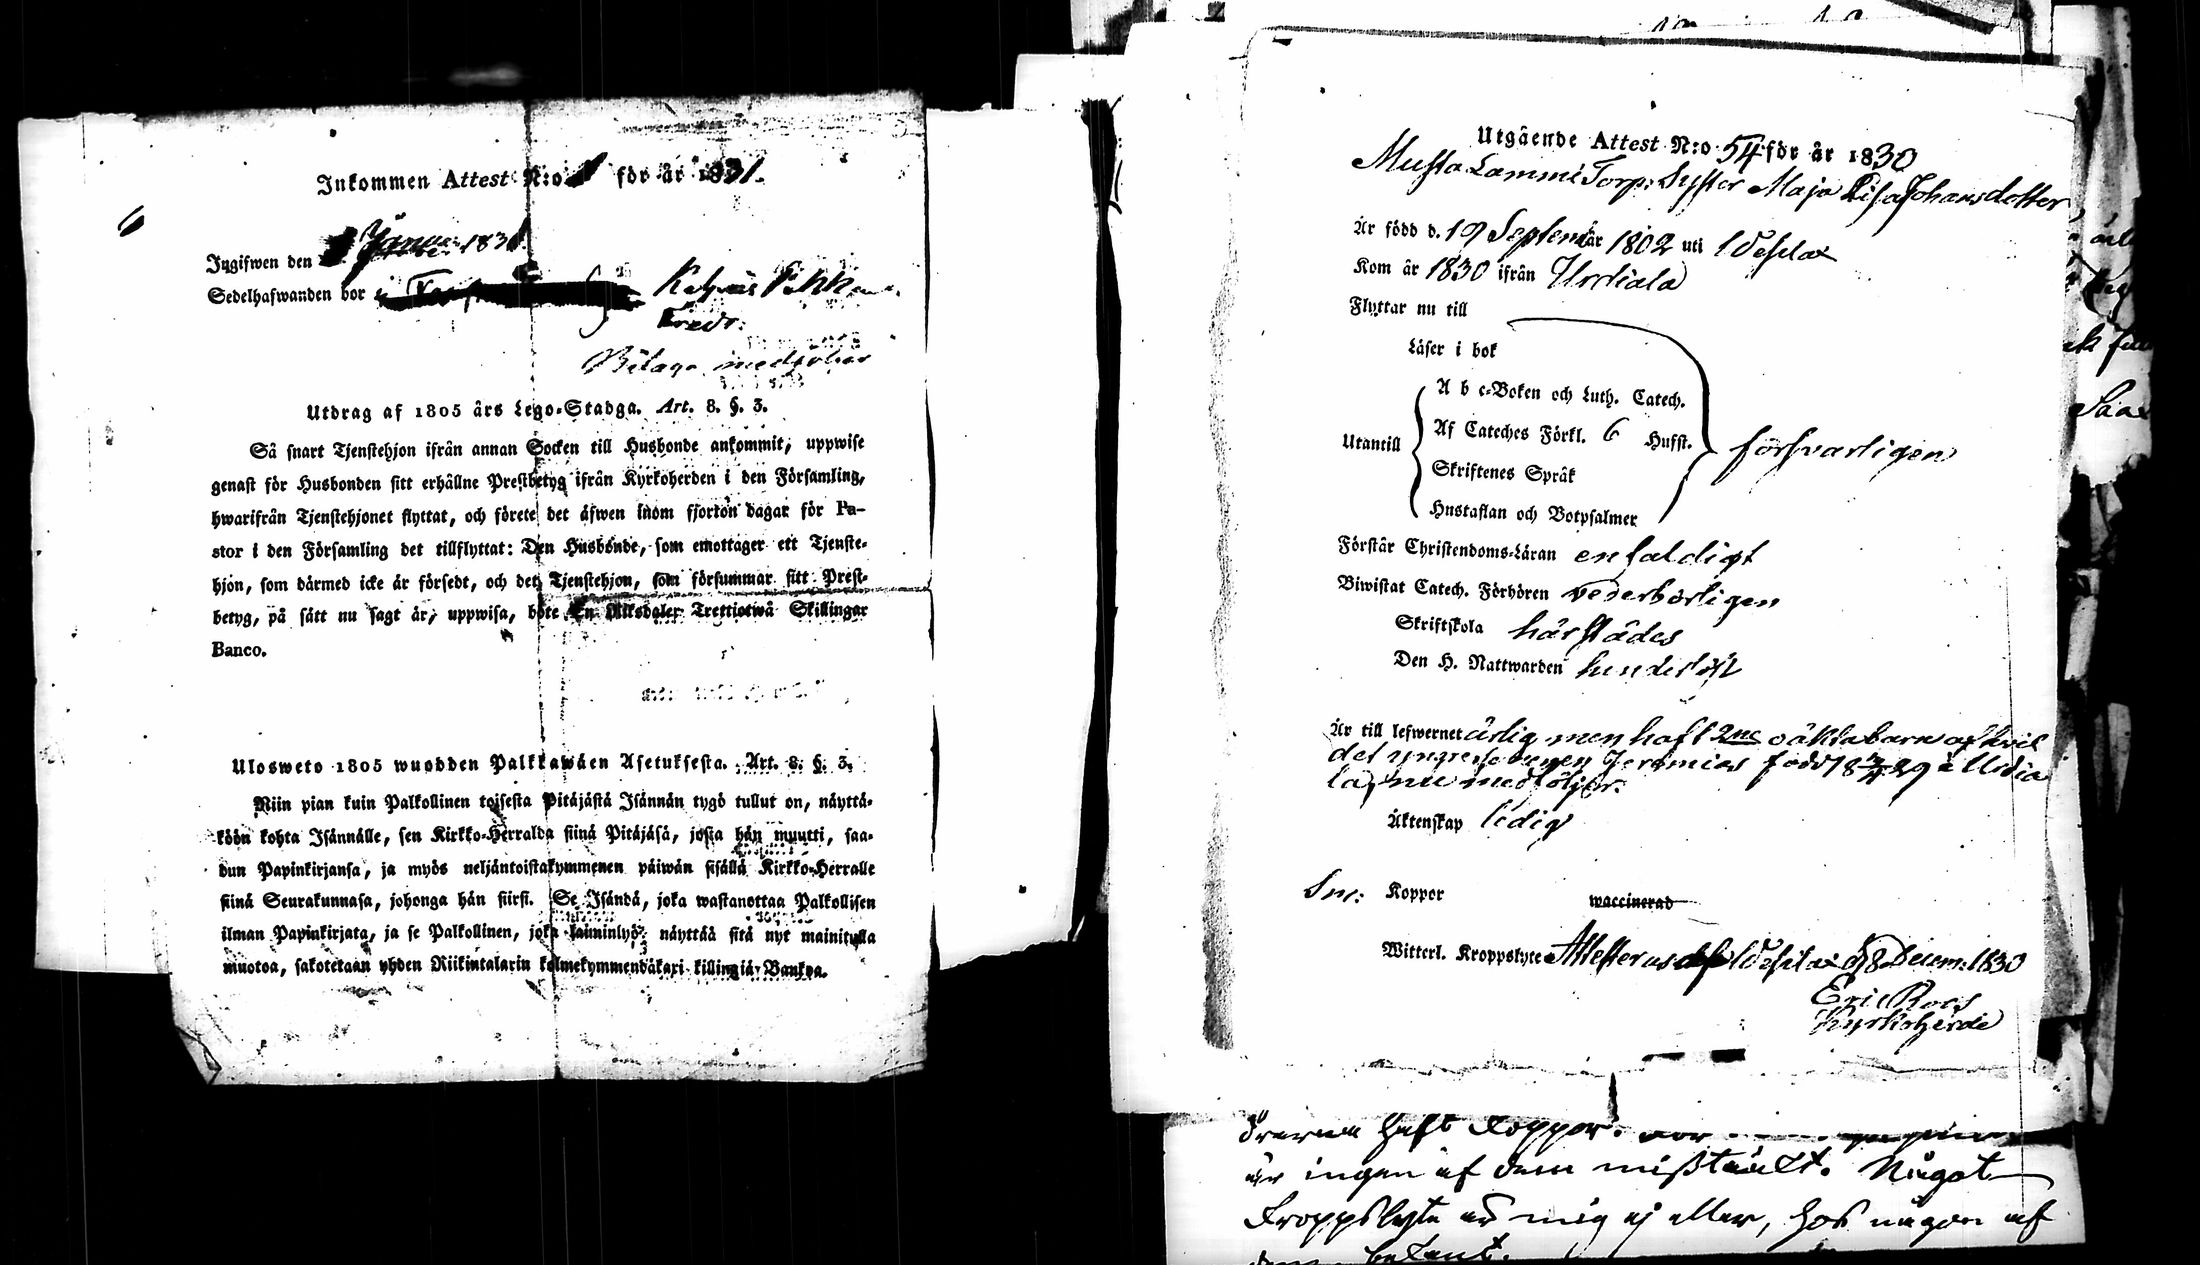 Inkommen Attest N:o 1 för år 1831.
6
Ingifwen den 1831
Sedelhafwanden bor
Fredr.
Bilaga medföljer
Utdrag af 1805 års Lego-Stadga. Art. 8. §. 3.
Så snart Tjenstehjon ifrån annan Socken till Husbonde ankommit, uppwise
genast för Husbonden sitt erhållne Prestbetyg ifrån Kyrkoherden i den Församling,
hwarifrån Tjenstehjonet flyttat, och förete det äfwen inom fjorton dagar för Pa-
stor i den Församling det tillflyttat: Den Husbonde, som emottager ett Tjenste-
hjon, som därmed icke är försedt, och det Tjenstehjon, som försummar sitt Prest-
betyg, på sätt nu sagt är, uppwisa, böte En Riksdaler Trettiotwå Skillingar
Banco.
Ulosweto 1805 wuodden Palkkawäen Asetuksesta. Art. 8. §. 3.
Niin pian kuin Palkollinen toisesta Pitäjästä Isännän tygö tullut on, näyttä-
köön kohta Isännälle, sen Kirkko-Herralda siinä Pitäjäsä, josta hän muutti, saa-
dun Papinkirjansa, ja myös neljäntoistakymmenen päiwän sisällä Kirkko-Herralle
siinä Seurakunnasa, johonga hän siirsi. Se Isändä, joka wastanottaa Palkollisen
ilman Papinkirjata, ja se Palkollinen, joka laiminlyö näyttää sitä nyt mainitulla
muotoa, sakotetaan yhden Riikintalarin kolmekymmendäkaxi killingiä Bankya.
Utgående Attest N:o 54 för år 1830
Musta Lammi Torp: Syster Maja Lisa Johansdotter
Är född d. 19 Septem år 1802 uti Wesilax
Kom år 1830 ifrån Urdiala
Flyttar nu till
Läser i bok
A b c-Boken och Luth. Catech.
Utantill Af Cateches Förkl. 6 Hufst. försvarligen
Skriftenes Språk
Hustaflan och Botpsalmer
Förstår Christendoms-Läran enfaldigt
Biwistat Catech. Förhören vederbörligen
Skriftskola härstädes
Den H. Nattwarden
Är till lefwernet ärlig men haft 2ne oäkta barn af hvil
det yngre sonen Jeremias född 18 29 i Urdia
la, nu medföljer.
Äktenskap ledig
Koppor waccinerad
Witterl. Kroppslyte Attesteras af Wesilax d 8 Decem: 1830
Eric Roos
Kyrkoherde
haft Koppor.
är ingen af dem mißtänkt. Något
Kroppslyte är mig ej eller, hos någon af
dem bekant.